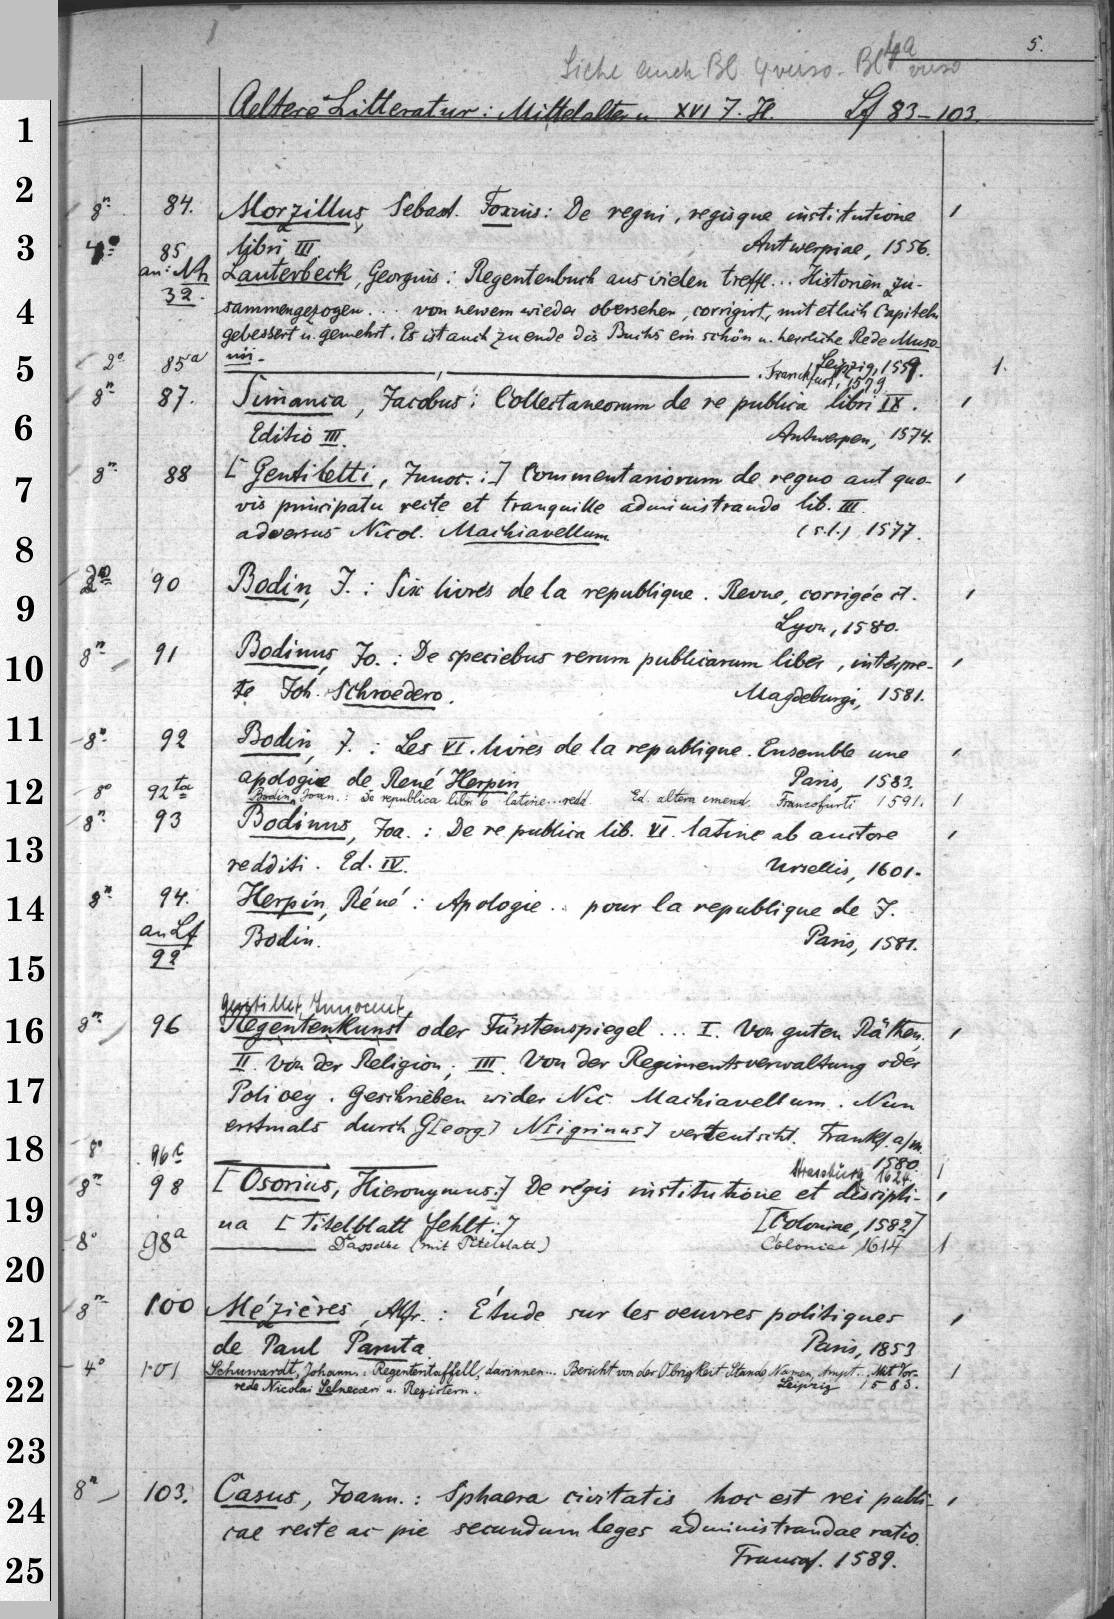 5.
Siehe auch Bl. 4 verso. Bl 4a verso
Aeltere Litteratur: Mittelalter u. XVI J. H. Lf 83–103.
1
2
8º 84. Morzillus, Sebast. Foxius: De regni, regisque institutione /
3
libri III Antwerpiae, 1556.
4º 85 an: Nh 32. Lauterbeck, Georgius: Regentenbuch aus vielen treffl... Historien zu-
4
sammengezogen... von newem wieder obersehen, corrigirt, mit etlich Capiteln
gebessert u. gemehrt. Es ist auch zu ende dis Buchs ein schön u. herrliche Rede Muso-
nii. Leipzig, 1559.
5
2º 85a ——— , ——— . Franckfurt, 1579 1.
8º 87. Simanca, Jacobus: Collectaneorum de re publica libri IX. /
6
Editio III. Antwerpen, 1574.
7
8º 88 [Gentiletti, Innoc.:] Commentariorum de regno aut quo- /
vis principatu recte et tranquille administrando lib. III.
8
adversus Nicol. Machiavellum (s.l.) 1577.
2º 90 Bodin, J.: Six livres de la republique. Revue, corrigée et. /
9
Lyon, 1580.
10
8º 91 Bodinus, Jo.: De speciebus rerum publicarum liber, interpre- /
te Joh. Schroedero. Magdeburgi, 1581.
11
8º 92 Bodin, J.: Les VI. livres de la republique. Ensemble une /
apologie de René Herpin Paris, 1583.
12
8º 92ta Bodin, Joan.: De republica libri 6 latine... redd. Ed. altera emend. Francofurti 1591. /
8º 93 Bodinus, Joa.: De re publica lib. VI. latine ab auctore /
13
redditi. Ed. IV. Ursellis, 1601.
14
8º 94. an Lf 92 Herpin, Réné: Apologie... pour la republique de J.
Bodin. Paris, 1581.
15
Gentillet, Innocent
16
8º 96 Regentenkunst oder Fürstenspiegel... I. Von guten Räthen, /
II. Von der Religion, III. Von der Regimentsverwaltung oder
17
Policey. Geschrieben wider Nic. Machiavellum. Nun
erstmals durch G[eorg] N[igrinus] verteutscht. Frankf. a/m.
1580.
18
8º 96c ——— ——— Strassburg 1624. /
8º 98 [Osorius, Hieronymus:] De regis institutione et discipli- /
19
na [Titelblatt fehlt:] [Coloniae, 1582]
8º 98a ——— Dasselbe (mit Titelblatt) Coloniae, 1614 /
20
8º 100 Mézières, Alfr.: Étude sur les oeuvres politiques /
21
de Paul Paruta. Paris, 1853
4º 101 Schuwardt, Johann.: Regententaffell, darinnen... Bericht von der Obrigkeit Stande Namen, Ampt... Mit Vor- /
22
rede Nicolai Selneceri u. Registern. Leipzig 1583.
23
8º 103. Casus, Joann.: Sphaera civitatis, hoc est rei publi- /
24
cae recte ac pie secundum leges administrandae ratio.
Francof. 1589.
25